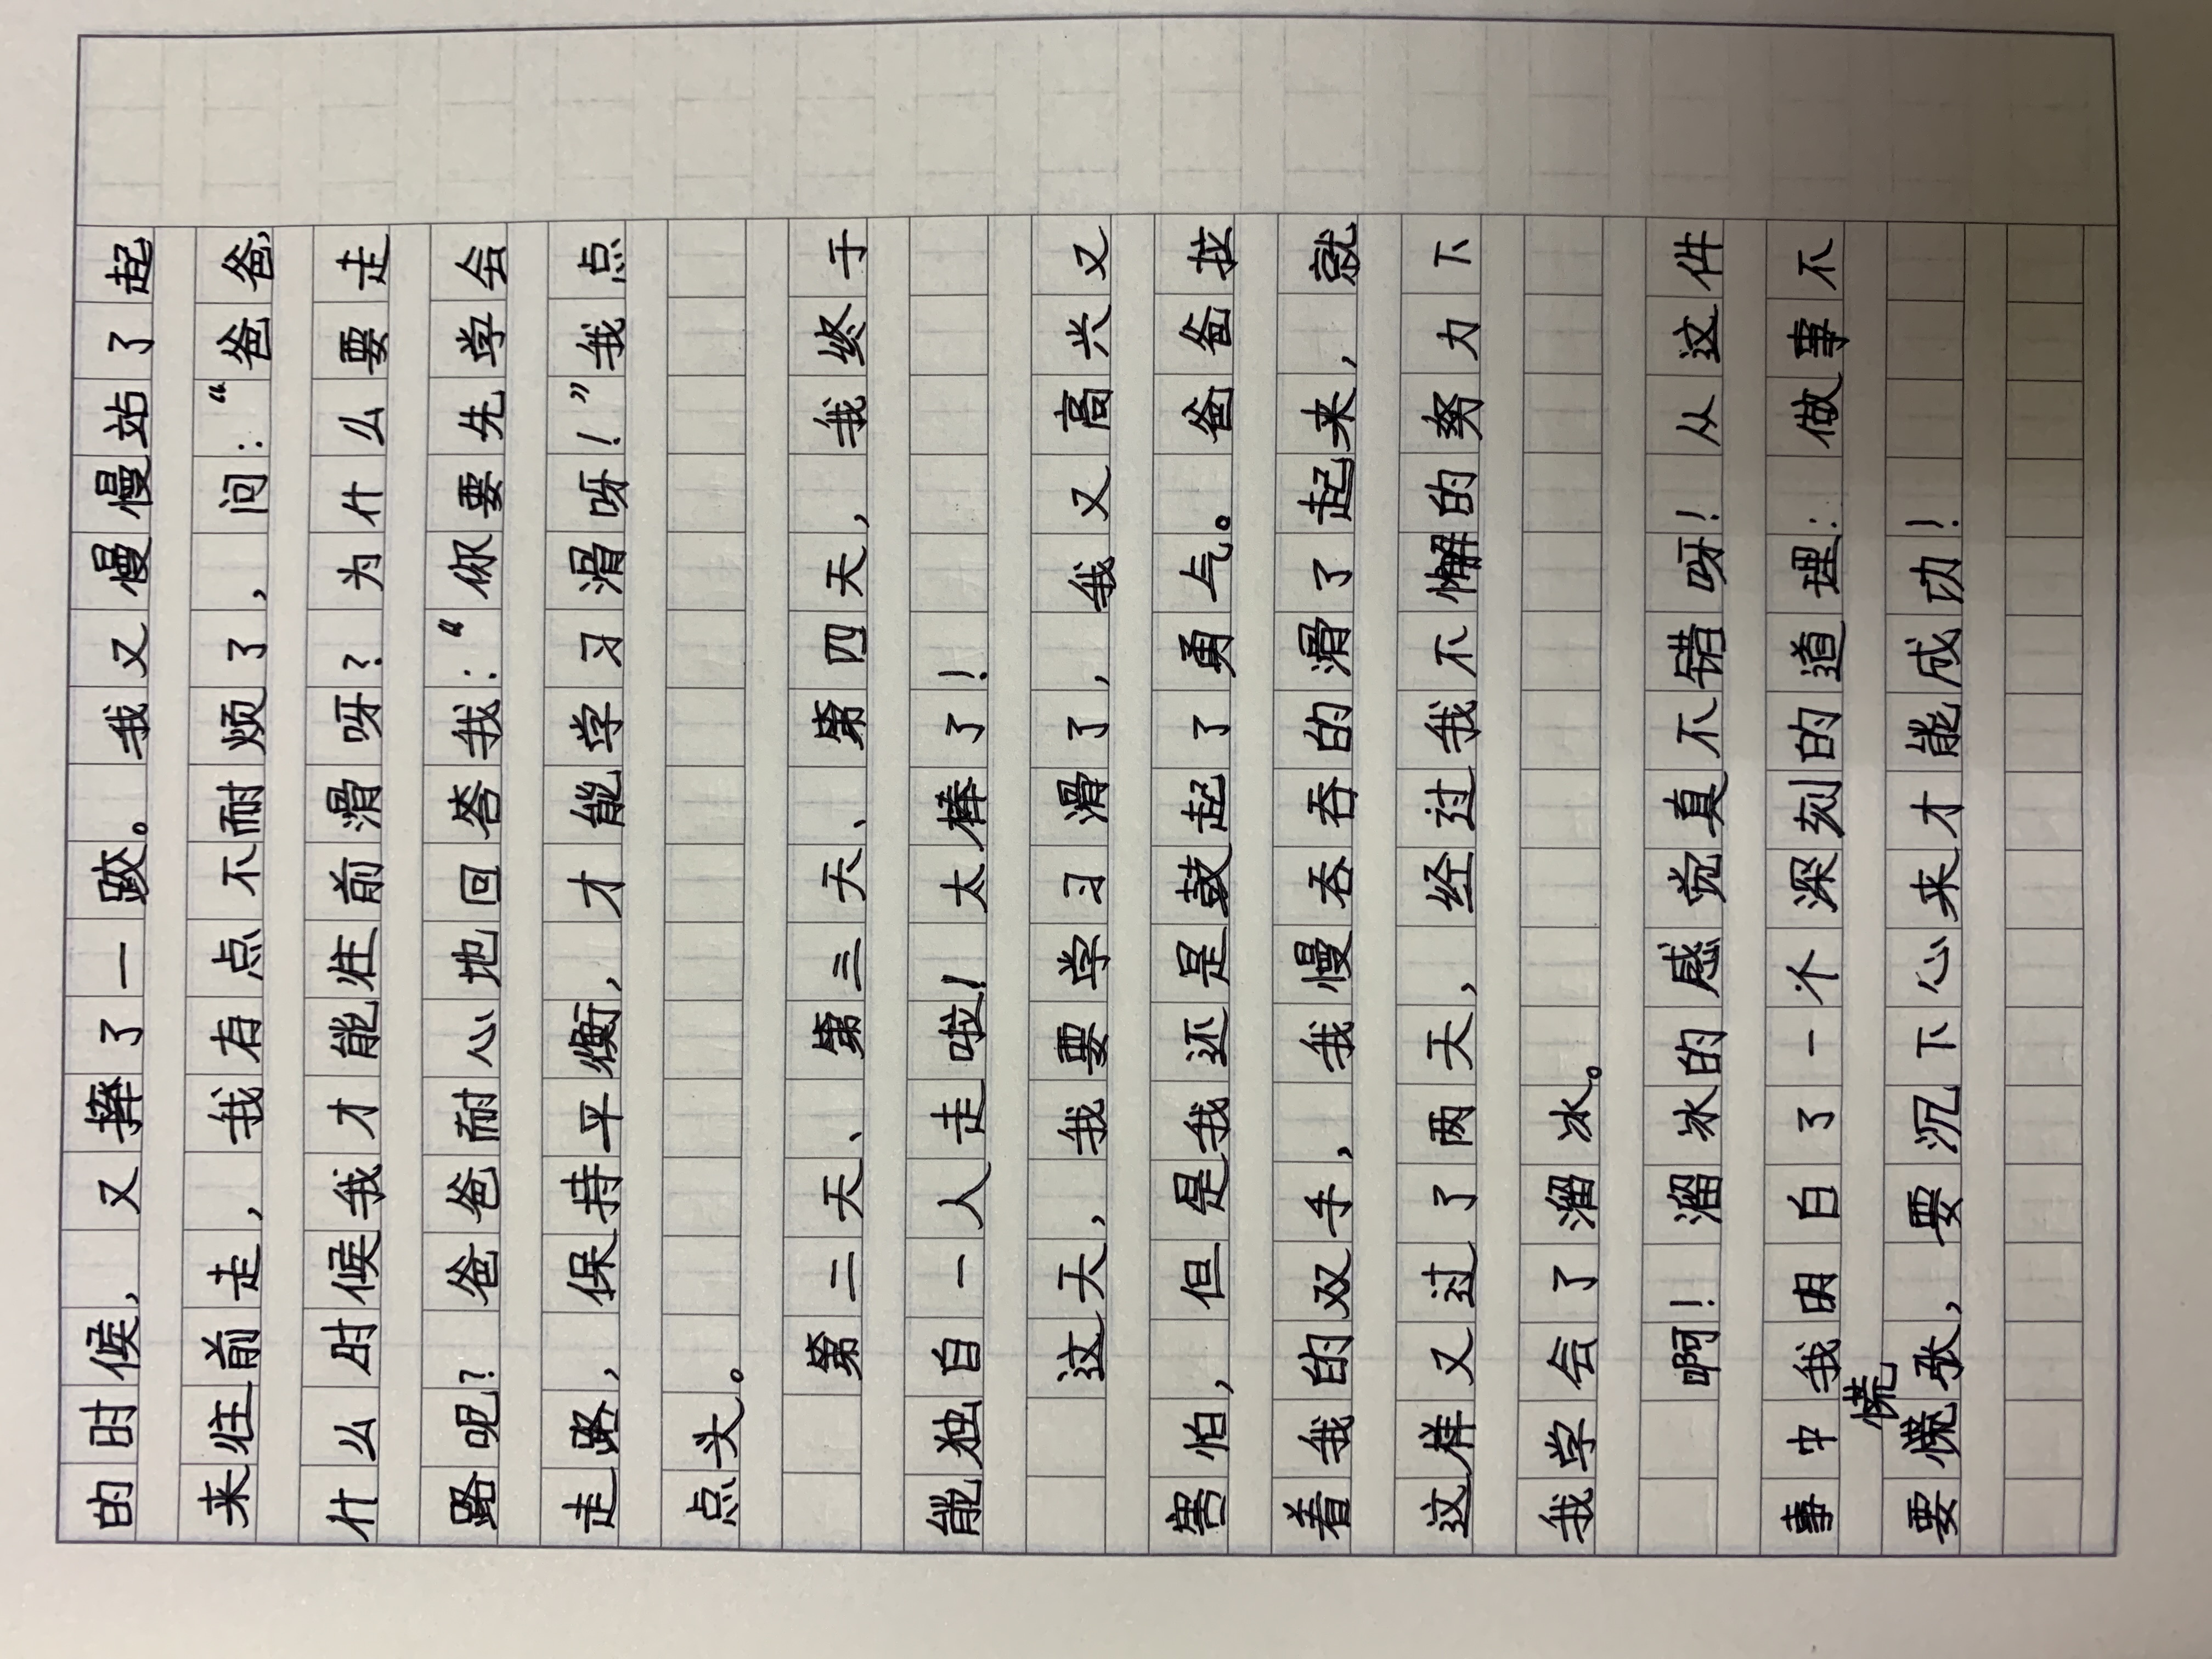 的时候，又摔了一跤。我又慢慢站了起
来往前走，我有点不耐烦了，问：“爸爸，
什么时候我才能往前滑呀？为什么要走
路呢？爸爸耐心地回答我：“你要先学会
走路，保持平衡，才能学习滑呀！”我点
点头。
第二天、第三天、第四天，我终于
能独自一人走啦！太棒了！
这天，我要学习滑了，我又高兴又
害怕，但是我还是鼓起了勇气。爸爸拉
着我的双手，我慢吞吞的滑了起来，就
这样又过了两天，经过我不懈的努力下
我学会了溜冰。
啊！溜冰的感觉真不错呀！从这件
事中我明白了一个深刻的道理：做事不
要慌张，要沉下心来才能成功！
慌